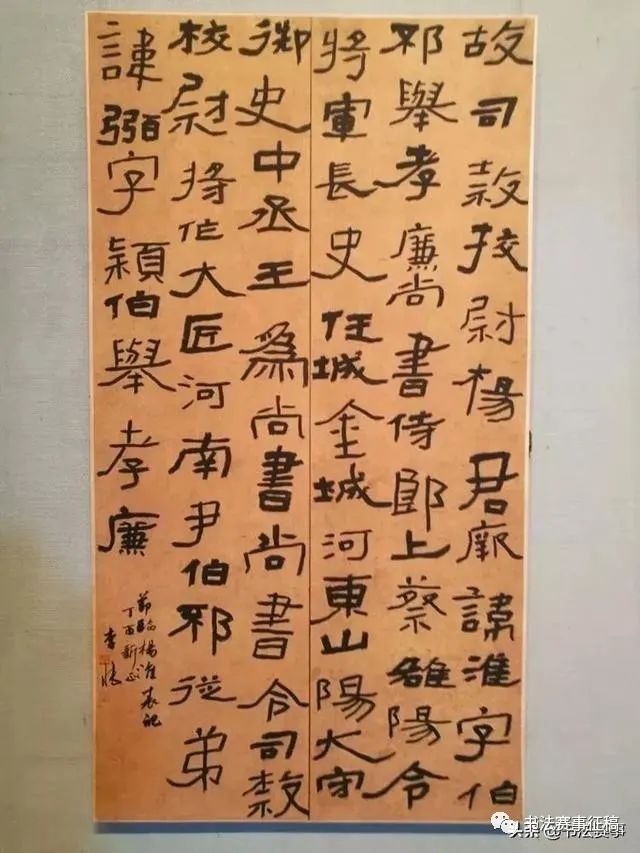 故司隷校尉楊君厥諱淮字伯
邪舉孝廉尚書侍郎上蔡雒陽令
將軍長史任城金城河東山陽大守
御史中丞王爲尚書尚書令司隷
校尉將作大匠河南尹伯邪從弟
諱弼字穎伯舉孝廉
節臨楊淮表紀
丁酉新正
书法赛事征稿
头条@书法赛事